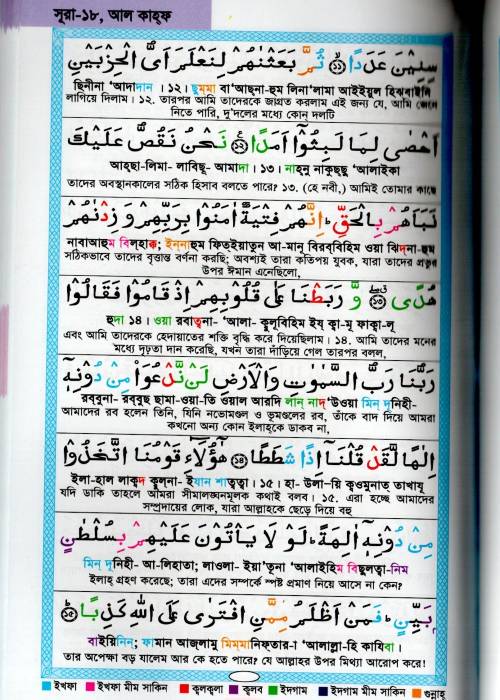 সূরা-১৮, আল কাহ্ফ
سِنِيْنَ عَدَدًا ﴿١١﴾ ثُمَّ بَعَثْنٰهُمْ لِنَعْلَمَ اَىُّ الْحِزْبَيْنِ
ছিনীনা ‘আদাদান । ১২। ছুম্মা বা‘আছ্না-হুম লিনা‘লামা আইইয়ুল হিয্বাইনি
লাগিয়ে দিলাম। ১২. তারপর আমি তাদেরকে জাগ্রত করলাম এই জন্য যে, আমি জেনে
নিতে পারি, দু’দলের মধ্যে কোন্ দলটি
اَحْصٰى لِمَا لَبِثُوْٓا اَمَدًا ﴿١٢﴾ نَحْنُ نَقُصُّ عَلَيْكَ
আহ্ছা-লিমা- লাবিছূ- আমাদা। ১৩। নাহ্নু নাকুছ্ছু ‘আলাইকা
তাদের অবস্থানকালের সঠিক হিসাব বলতে পারে? ১৩. (হে নবী,) আমিই তোমার কাছে
نَبَاَهُمْ بِالْحَقِّ ؕ اِنَّهُمْ فِتْيَةٌ اٰمَنُوْا بِرَبِّهِمْ وَ زِدْنٰهُمْ
নাবাআহুম বিলহাক্ক; ইন্নাহুম ফিতইয়াতুন আ-মানূ বিরব্বিহিম ওয়া ঝিদ্না-হুম
সঠিকভাবে তাদের বৃত্তান্ত বর্ণনা করছি; অবশ্যই তারা কতিপয় যুবক, যারা তাদের প্রভুর
উপর ঈমান এনেছিলো,
هُدًى ﴿١٣﴾ وَّ رَبَطْنَا عَلٰى قُلُوْبِهِمْ اِذْ قَامُوْا فَقَالُوْا
হুদা ১৪। ওয়া রবাত্বনা- ‘আলা- কুলূবিহিম ইয্ ক্বা-মূ ফাক্বা-লূ
এবং আমি তাদেরকে হেদায়াতের শক্তি বৃদ্ধি করে দিয়েছিলাম। ১৪. আমি তাদের মনের
মধ্যে দৃঢ়তা দান করেছি, যখন তারা দাঁড়িয়ে গেল তারপর বলল,
رَبُّنَا رَبُّ السَّمٰوٰتِ وَالْاَرْضِ لَنْ نَّدْعُوَا۠ مِنْ دُوْنِهٖٓ
রব্বুনা- রব্বুছ ছামা-ওয়া-তি ওয়াল আরদি লান্ নাদ্‘উওয়া মিন্ দূনিহী-
আমাদের রব হলেন তিনি, যিনি নভোমণ্ডল ও ভূমণ্ডলের রব, তাঁকে বাদ দিয়ে আমরা
কখনো অন্য কোন ইলাহ্কে ডাকব না,
اِلٰهًا لَّقَدْ قُلْنَآ اِذًا شَطَطًا ﴿١٤﴾ هٰٓؤُلَآءِ قَوْمُنَا اتَّخَذُوْا
ইলা-হাল লাক্বদ্ কুলনা- ইযান শাত্বত্বা। ১৫। হা- উলা-য়ি ক্বওমুনাত্ তাখাযূ
যদি ডাকি তাহলে আমরা সীমালঙ্ঘনমূলক কথাই বলব। ১৫. এরা হচ্ছে আমাদের
সম্প্রদায়ের লোক, যারা আল্লাহকে ছেড়ে দিয়ে বহু
مِنْ دُوْنِهٖٓ اٰلِهَةً ؕ لَوْ لَا يَاْتُوْنَ عَلَيْهِمْ بِسُلْطٰنٍۢ
মিন্ দূনিহী- আ-লিহাতা; লাওলা- ইয়া’তূনা ‘আলাইহিম বিছুলত্বা-নিম
ইলাহ্ গ্রহণ করেছে; তারা এদের সম্পর্কে স্পষ্ট প্রমাণ নিয়ে আসে না কেন?
بَيِّنٍ ؕ فَمَنْ اَظْلَمُ مِمَّنِ افْتَرٰى عَلَى اللّٰهِ كَذِبًا ﴿١٥﴾
বাইয়িনিন; ফামান আজ্লামু মিম্মানিফ্তার-া ‘আলাল্লা-হি কাযিবা।
তার অপেক্ষা বড় যালেম আর কে হতে পারে? যে আল্লাহর উপর মিথ্যা আরোপ করে!
ইখফা ইখফা মীম সাকিন কুলকুলা কুলব ইদগাম ইদগাম মীম সাকিন গুন্নাহ্